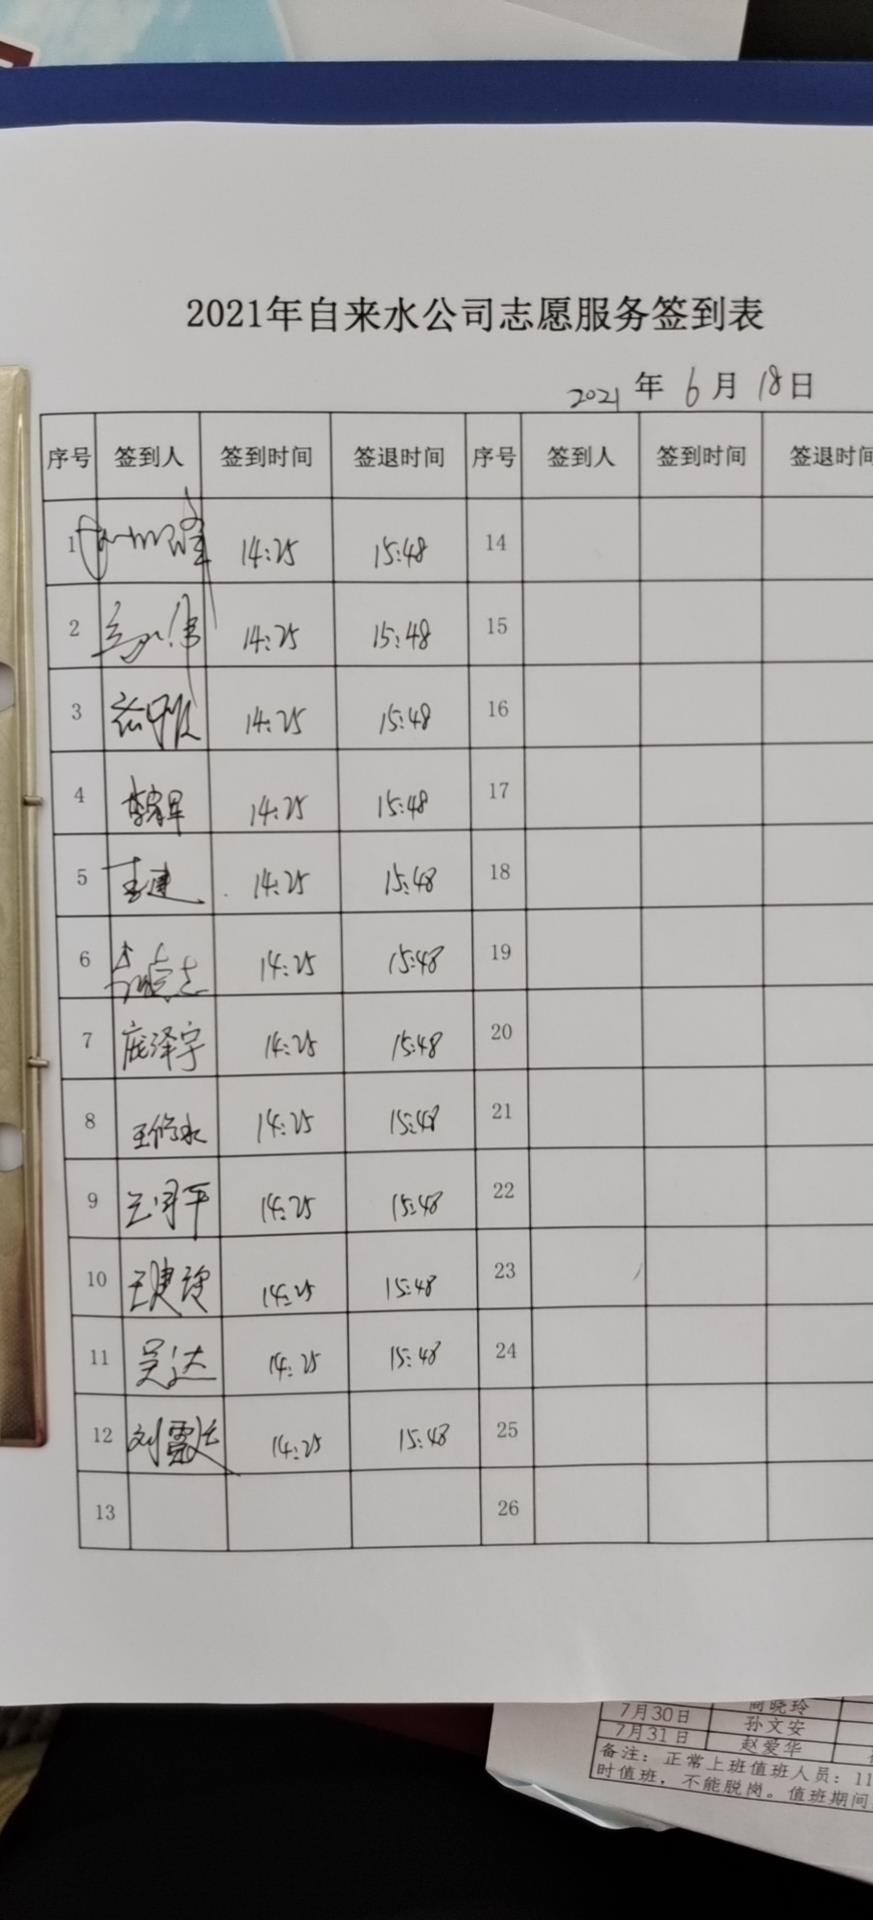 2021年自来水公司志愿服务签到表
2021 年 6 月 18 日
序号 签到人 签到时间 签退时间 序号 签到人 签到时间 签退时间
1 14:25 15:48 14
2 14:25 15:48 15
3 14:25 15:48 16
4 14:25 15:48 17
5 王建 14:25 15:48 18
6 14:25 15:48 19
7 庞泽宇 14:25 15:48 20
8 王修水 14:25 15:48 21
9 14:25 15:48 22
10 14:25 15:48 23
11 吴达 14:25 15:48 24
12 刘 14:25 15:48 25
13 26
商晓玲
7月30日 孙文安
7月31日 赵爱华
备注：正常上班值班人员：11
时值班，不能脱岗。值班期间